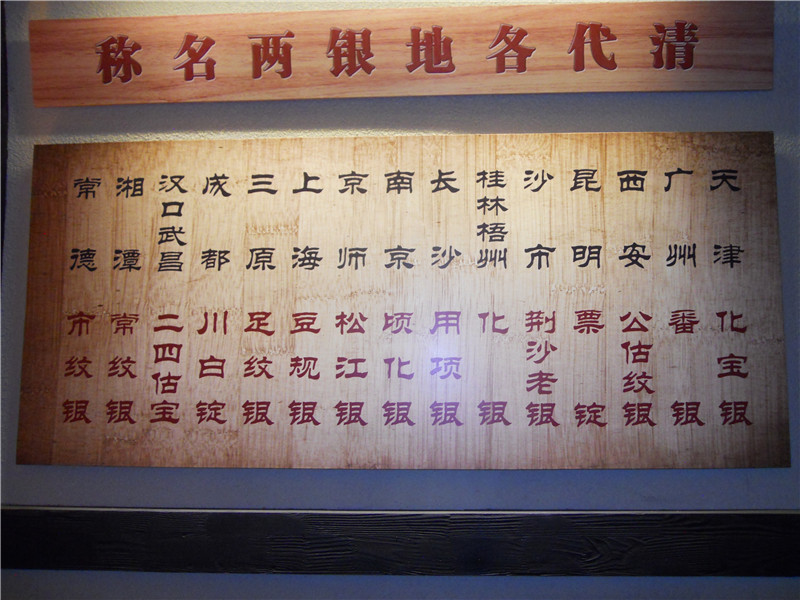 清代各地银两名称
天津 化宝银
广州 番银
西安 公估纹银
昆明 票锭
沙市 荆沙老银
桂林梧州 化银
长沙 用项银
南京 顷化银
京师 松江银
上海 豆规银
三原 足纹银
成都 川白锭
汉口武昌 二四估宝
湘潭 常纹银
常德 市纹银